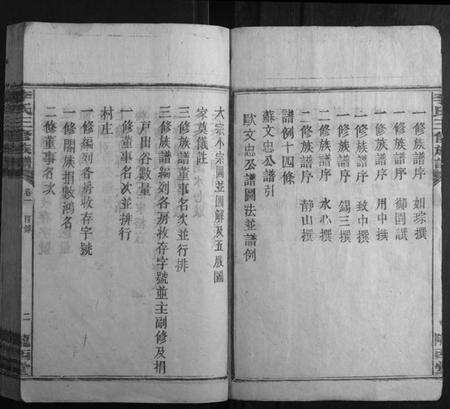 一修族譜序 如琮撰
一修族譜序 御團試
一修族譜序 用中撰
一修族譜序 致中撰
二修族譜序 錫三撰
二修族譜序 永心撰
二修族譜序 靜山撰
譜例十四條
蘇文忠公譜引
歐文忠公譜圖法並譜例
大宗小宗圖並圖解及五服圖
家奠儀註
三修族譜董事名次並行排
三修族譜編刻各房收存字號並主副修及捐
戶出谷數量
一修董事名次並排行
村庄
一修編刻各房收存字號
一修闔族捐數鴻名
二修董事名次
氏三修族譜 卷一 目錄 二